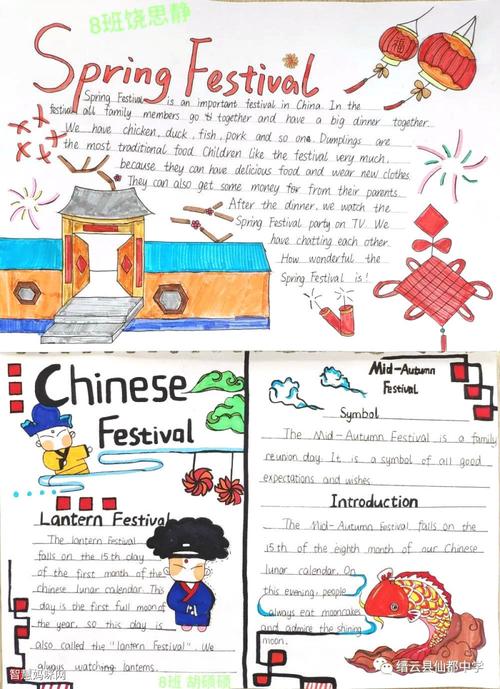 8班饶思静
Spring Festival
Spring Festival is an important festival in China. In the
festival all family members go together and have a big dinner together.
We have chicken, duck, fish, pork and so one. Dumplings are
the most traditional food. Children like the festival very much,
because they can have delicious food and wear new clothes.
They can also get some money for from their parents.
After the dinner, we watch the
Spring Festival party on TV. We
have chatting each other.
How wonderful the
Spring Festival is!
福
Chinese
Festival
Lantern Festival
The lantern festival
falls on the 15th day
of the first month of the
chinese lunar calendar. This
day is the first full moon of
the year. so this day is
also called the "lantern Festival". We
always watching lanterns.
8班 胡硕硕
智慧妈咪网
Mid-Autumn
Festival
Symbol
The Mid-Autumn Festival is a family
reunion day. It is a symbol of all good
expectations and wishes
Introduction
The Mid-Autumn Festival falls on the
15th of the eighth month of our Chinese
lunar calendar. On
this evening, people
always eat mooncakes
and admire the shining
moon.
缙云县仙都中学